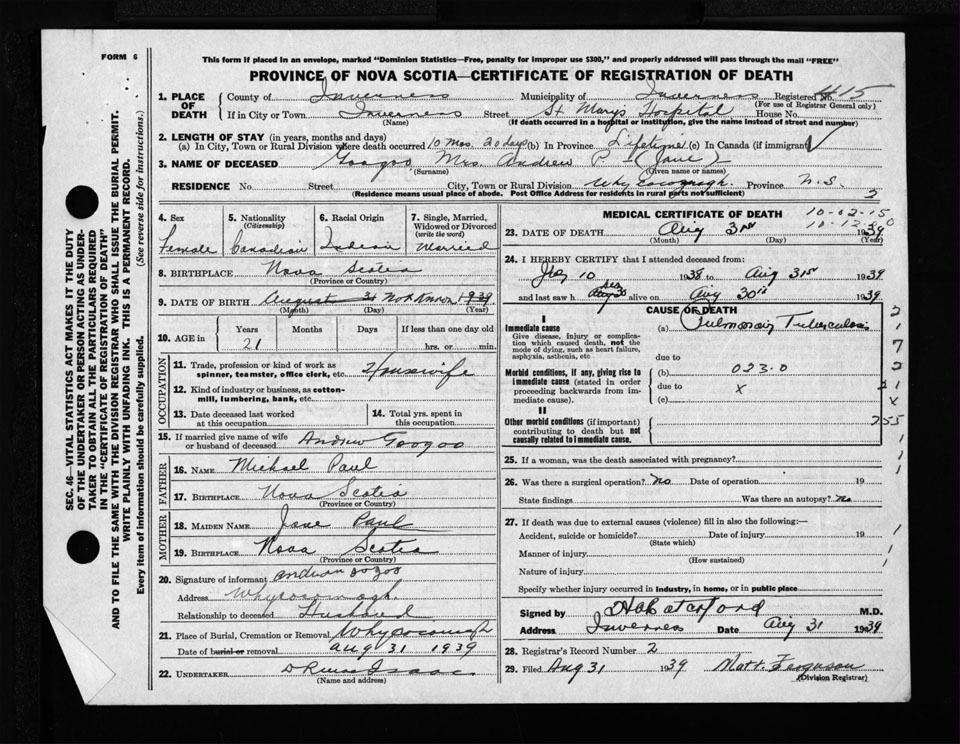 FORM 6
This form if placed in an envelope, marked "Dominion Statistics—Free, penalty for improper use $300," and properly addressed will pass through the mail "FREE"
PROVINCE OF NOVA SCOTIA—CERTIFICATE OF REGISTRATION OF DEATH
SEC. 46—VITAL STATISTICS ACT MAKES IT THE DUTY
OF THE UNDERTAKER OR PERSON ACTING AS UNDER-
TAKER TO OBTAIN ALL THE PARTICULARS REQUIRED
IN THE "CERTIFICATE OF REGISTRATION OF DEATH"
AND TO FILE THE SAME WITH THE DIVISION REGISTRAR WHO SHALL ISSUE THE BURIAL PERMIT.
WRITE PLAINLY WITH UNFADING INK. THIS IS A PERMANENT RECORD.
Every item of information should be carefully supplied. (See reverse side for instructions.)
1. PLACE OF DEATH County of Inverness Municipality of Inverness Registered No. 415
(For use of Registrar General only)
If in City or Town Inverness Street St Mary's Hospital House No.
(Name) (If death occurred in a hospital or institution, give the name instead of street and number)
2. LENGTH OF STAY (in years, months and days)
(a) In City, Town or Rural Division where death occurred 10 Mos. 20 days (b) In Province Lifetime (c) In Canada (if immigrant)
3. NAME OF DECEASED Googoo Mrs. Andrew P (Jane)
(Surname) (Given name or names)
RESIDENCE No. Street City, Town or Rural Division Whycocomagh. Province N.S.
(Residence means usual place of abode. Post Office Address for residents in rural parts not sufficient) 2
4. Sex Female
5. Nationality (Citizenship) Canadian
6. Racial Origin Indian
7. Single, Married, Widowed or Divorced (write the word) Married
8. BIRTHPLACE Nova Scotia
(Province or Country)
9. DATE OF BIRTH August 31 Not known 1939
(Month) (Day) (Year)
10. AGE in Years Months Days If less than one day
21 hrs. or min.
OCCUPATION
11. Trade, profession or kind of work as spinner, teamster, office clerk, etc. Housewife
12. Kind of industry or business, as cotton-mill, lumbering, bank, etc.
13. Date deceased last worked at this occupation
14. Total yrs. spent in this occupation
15. If married give name of wife or husband of deceased Andrew Googoo
FATHER
16. NAME Michael Paul
17. BIRTHPLACE Nova Scotia
(Province or Country)
MOTHER
18. MAIDEN NAME Jane Paul
19. BIRTHPLACE Nova Scotia
(Province or Country)
20. Signature of informant
Address Whycocomagh.
Relationship to deceased Husband
21. Place of Burial, Cremation or Removal Whycocomagh
Date of burial or removal Aug 31 1939
22. UNDERTAKER Isaac
(Name and address)
MEDICAL CERTIFICATE OF DEATH 10-02-15
10-12-0
23. DATE OF DEATH Aug 31st 1939
(Month) (Day) (Year)
24. I HEREBY CERTIFY that I attended deceased from:
10 1938 to Aug 31st 1939
and last saw her alive on Aug 30th 1939
CAUSE OF DEATH
I
Immediate cause (a) Pulmonary Tuberculosis
Give disease, injury or complication which caused death, not the mode of dying, such as heart failure, asphyxia, asthenia, etc
due to
Morbid conditions, if any, giving rise to immediate cause (stated in order proceeding backwards from immediate cause).
(b) 023.0
due to x
(c)
II
Other morbid conditions (if important) contributing to death but not causally related to immediate cause.
2
1
7
2
2 1
x
255
1
1
1
25. If a woman, was the death associated with pregnancy?
26. Was there a surgical operation? No Date of operation 19
State findings Was there an autopsy? No
27. If death was due to external causes (violence) fill in also the following:—
Accident, suicide or homicide? Date of injury 19
(State which)
Manner of injury
(How sustained)
Nature of injury
Specify whether injury occurred in industry, in home, or in public place
Signed by M.D.
Address Inverness Date Aug 31 1939
28. Registrar's Record Number 2
29. Filed Aug 31 1939 Matt. Ferguson
(Division Registrar)